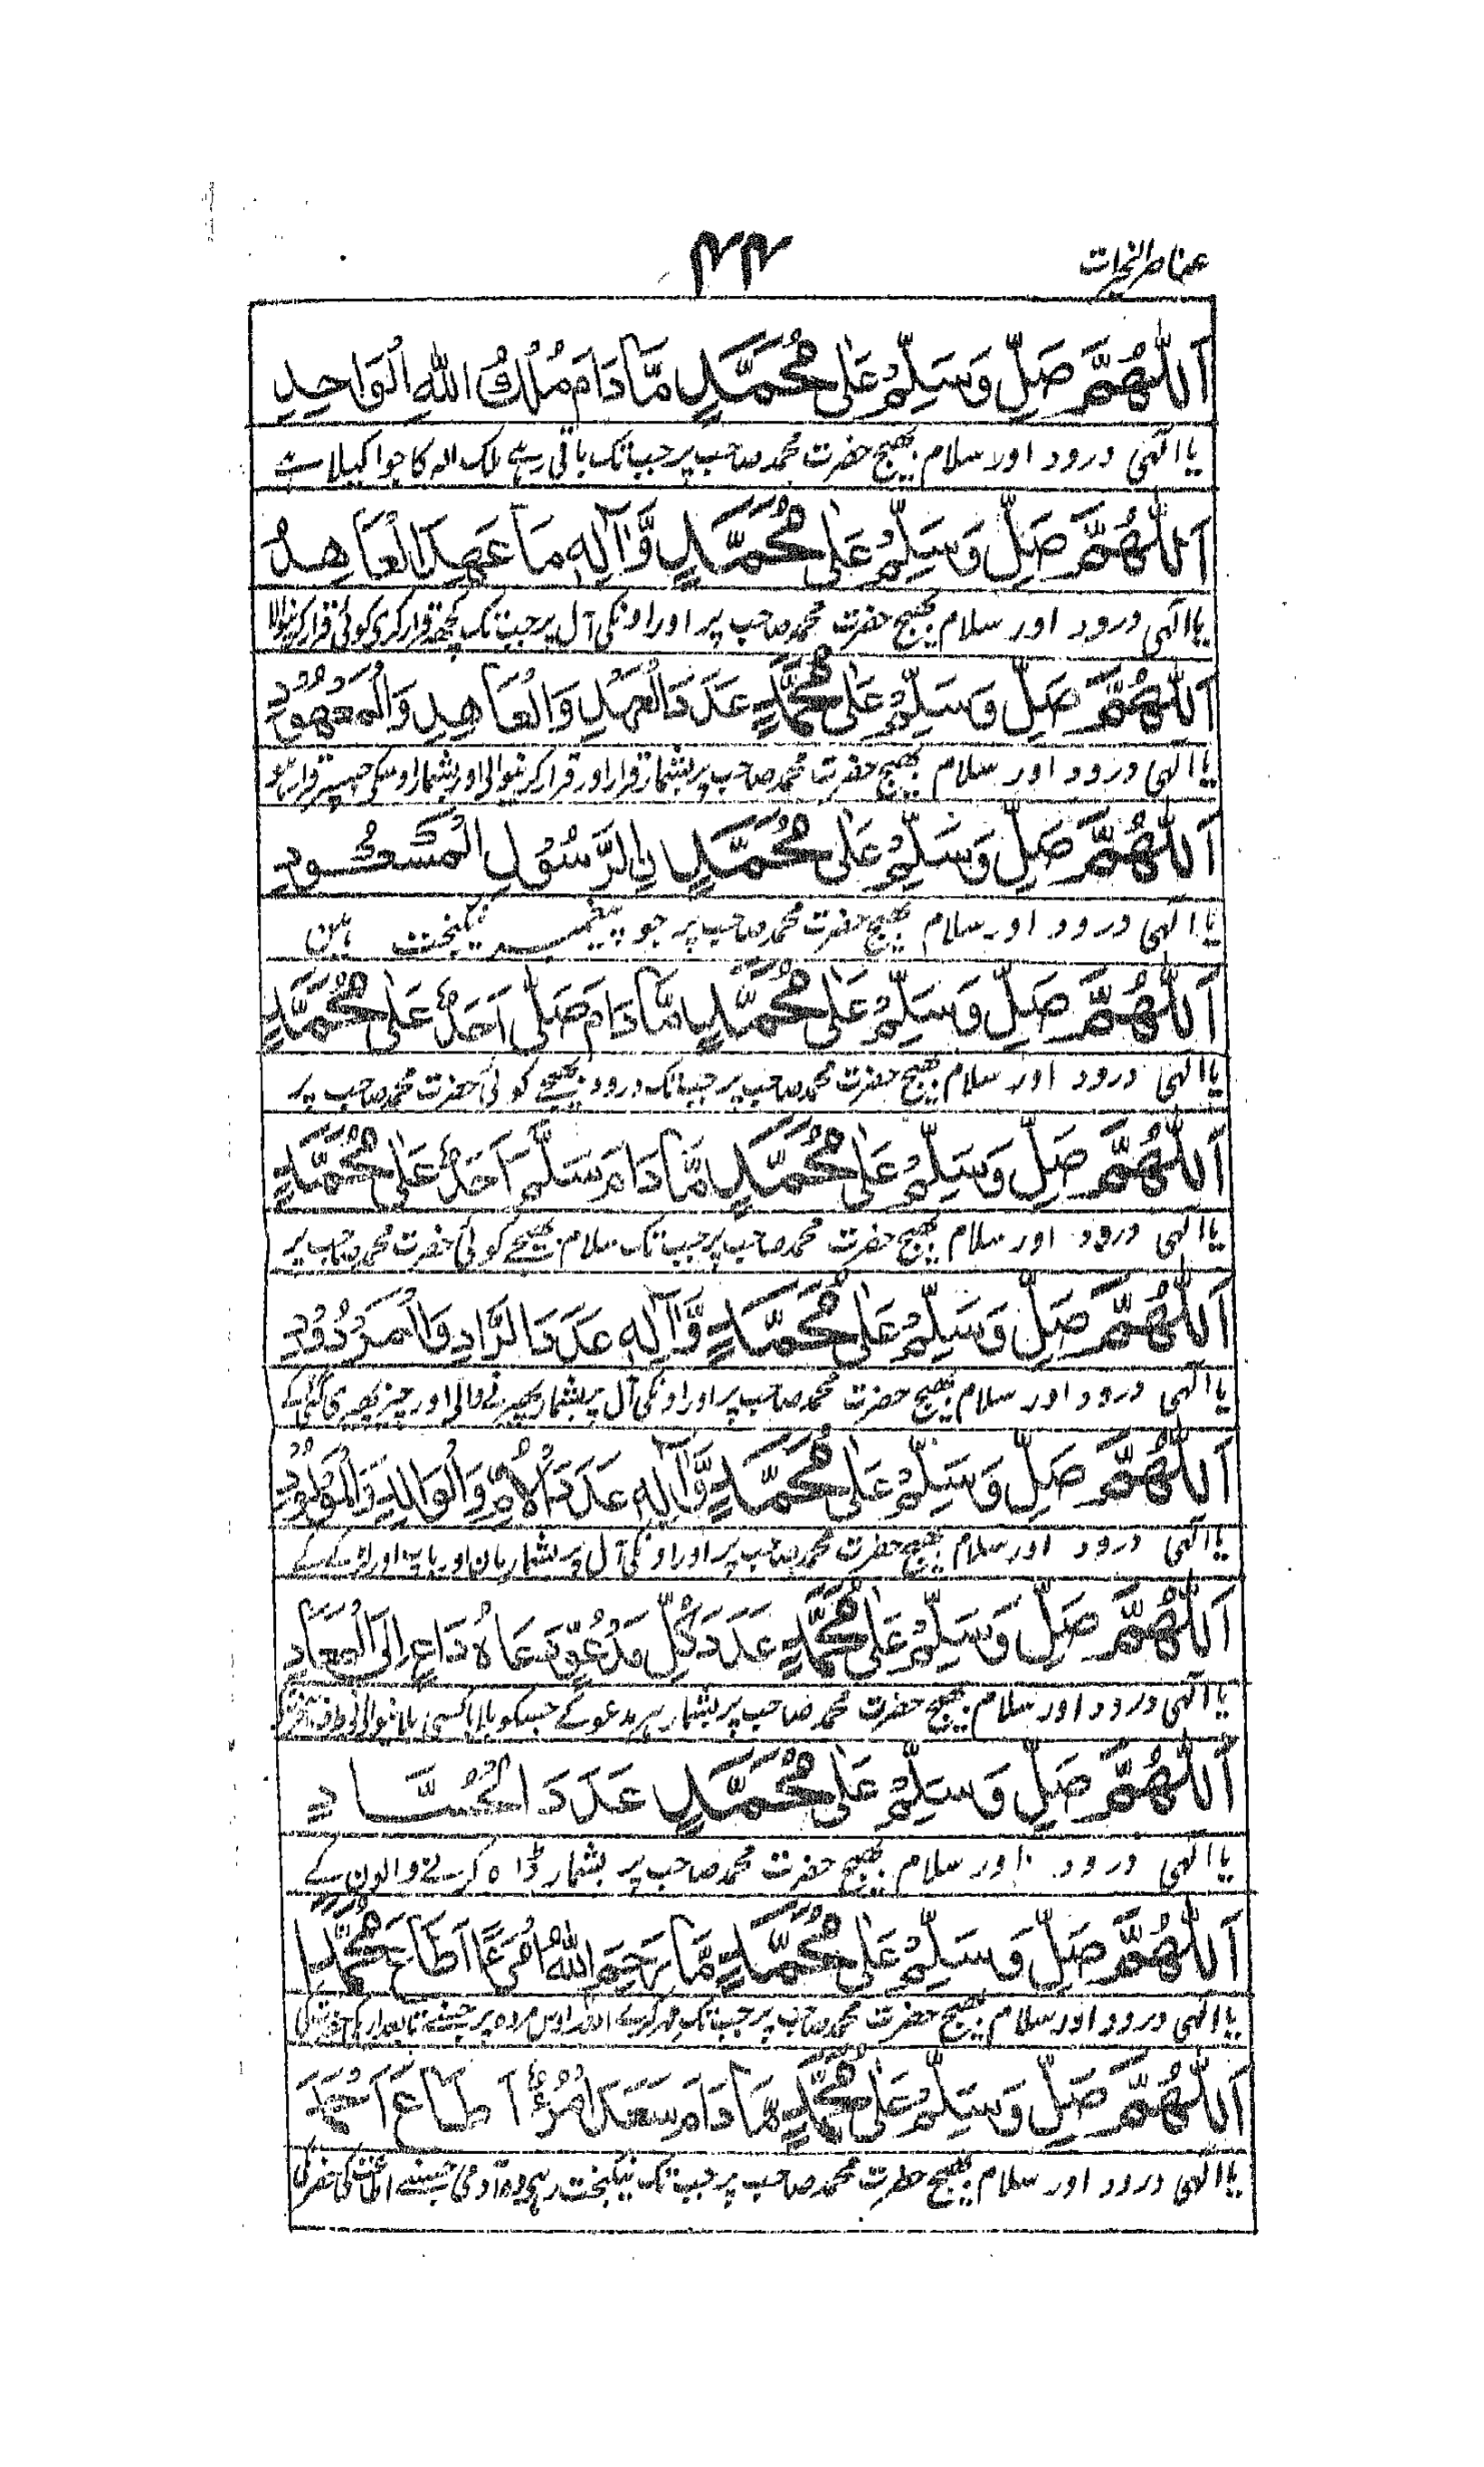 عناصر النجات
۴۴
اَللّٰهُمَّ صَلِّ وَسَلِّمْ عَلٰى مُحَمَّدٍ مَّا دَامَ مُلْكُ اللّٰهِ الْوَاحِدِ
یا الٰہی درود اور سلام بھیج حضرت محمد صاحب پر جب تک باقی رہے ملک اللہ کا جو اکیلا ہے
اَللّٰهُمَّ صَلِّ وَسَلِّمْ عَلٰى مُحَمَّدٍ وَّاٰلِهٖ مَا عَهِدَ الْعَاهِدُ
یا الٰہی درود اور سلام بھیج حضرت محمد صاحب پر اور اونکی آل پر جب تک کچھ قرار کری کوئی قرار کرنیوالا
اَللّٰهُمَّ صَلِّ وَسَلِّمْ عَلٰى مُحَمَّدٍ عَدَدَ الْعَهْدِ وَالْعَاهِدِ وَالْمَعْهُوْدِ
یا الٰہی درود اور سلام بھیج حضرت محمد صاحب پر بشمار قرار اور قرار کرنیوالی اور بشمار اوسکی جسپر قرار ہو
اَللّٰهُمَّ صَلِّ وَسَلِّمْ عَلٰى مُحَمَّدٍ اِۨلرَّسُوْلِ الْمَسْعُوْدِ
یا الٰہی درود اور سلام بھیج حضرت محمد صاحب پر جو پیغمبر نیکبخت ہین
اَللّٰهُمَّ صَلِّ وَسَلِّمْ عَلٰى مُحَمَّدٍ مَّا دَامَ صَلّٰى اَحَدٌ عَلٰى مُحَمَّدٍ
یا الٰہی درود اور سلام بھیج حضرت محمد صاحب پر جب تک درود بھیجے کوئی حضرت محمد صاحب پر
اَللّٰهُمَّ صَلِّ وَسَلِّمْ عَلٰى مُحَمَّدٍ مَّا دَامَ سَلَّمَ اَحَدٌ عَلٰى مُحَمَّدٍ
یا الٰہی درود اور سلام بھیج حضرت محمد صاحب پر جب تک سلام بھیجے کوئی حضرت محمد صاحب پر
اَللّٰهُمَّ صَلِّ وَسَلِّمْ عَلٰى مُحَمَّدٍ وَّاٰلِهٖ عَدَدَ الرَّادِ وَالْمَرْدُوْدِ
یا الٰہی درود اور سلام بھیج حضرت محمد صاحب پر اور اونکی آل پر بشمار پھیرنے والی اور چیز پھیری گئی کے
اَللّٰهُمَّ صَلِّ وَسَلِّمْ عَلٰى مُحَمَّدٍ وَّاٰلِهٖ عَدَدَ الْاُمِّ وَالْوَالِدِ وَالْمَوْلُوْدِ
یا الٰہی درود اور سلام بھیج حضرت محمد صاحب پر اور اونکی آل پر بشمار مان اور باپ اور لڑکے کے
اَللّٰهُمَّ صَلِّ وَسَلِّمْ عَلٰى مُحَمَّدٍ عَدَدَ كُلِّ مَدْعُوٍّ دَعَاهُ دَاعٍ اِلَى الْمَعَادِ
یا الٰہی درود اور سلام بھیج حضرت محمد صاحب پر بشمار ہر مدعو کے جسکو بلایا کسی بلانیوالی نی طرف
اَللّٰهُمَّ صَلِّ وَسَلِّمْ عَلٰى مُحَمَّدٍ عَدَدَ الْحُسَّادِ
یا الٰہی درود اور سلام بھیج حضرت محمد صاحب پر بشمار ڈاہ کرنے والون کے
اَللّٰهُمَّ صَلِّ وَسَلِّمْ عَلٰى مُحَمَّدٍ مَّا رَحِمَ اللّٰهُ امْرَءًا اَطَاعَ مُحَمَّدًا
یا الٰہی درود اور سلام بھیج حضرت محمد صاحب پر جب تک مہر کرے اللہ اوس مرد پر جسنے تابعداری کی
اَللّٰهُمَّ صَلِّ وَسَلِّمْ عَلٰى مُحَمَّدٍ مَّا دَامَ سَعَدَ امْرُءٌ اَطَاعَ اَحْمَدَ
یا الٰہی درود اور سلام بھیج حضرت محمد صاحب پر جب تک نیکبخت رہی وہ آدمی جسنے اطاعت کی